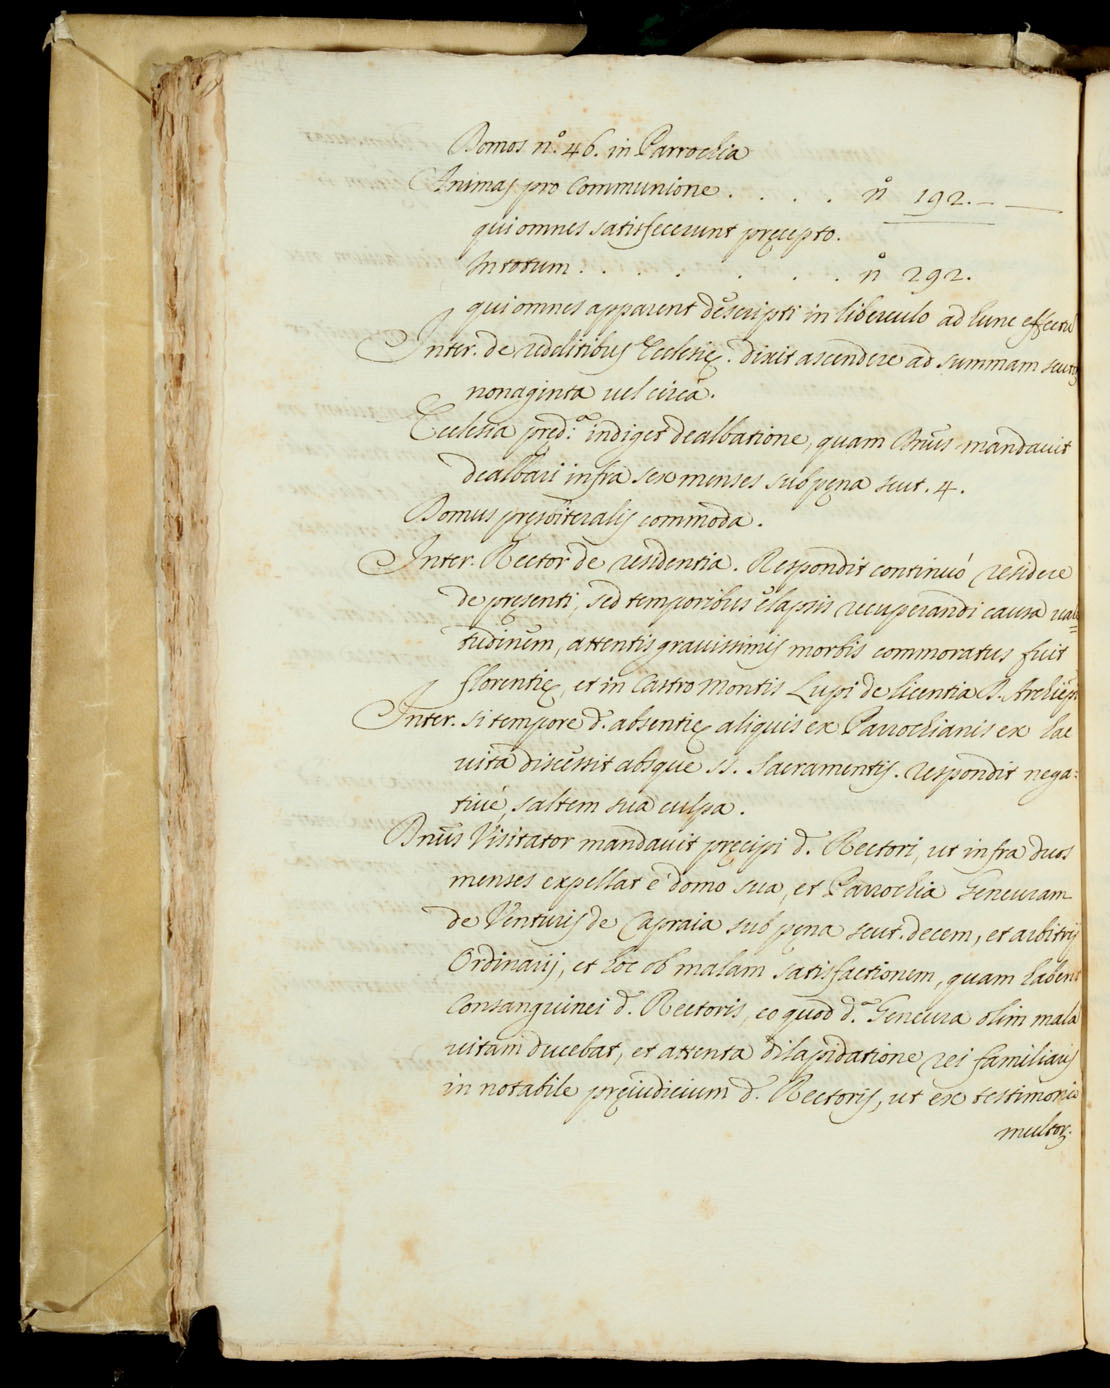 Domos n.º 46. in Parrochia
Animas pro Communione . . . . nº 192. —
qui omnes satisfecerunt pręcepto.
In totum . . . . . . . nº 292.
qui omnes apparent descripti in liberculo ad hunc effectũ
Inter. de redditibus Ecclesię. dixit ascendere ad summam scutoꝝ
nonaginta vel circa.
Ecclesia pred.ª indiget dealbatione, quam Dnus mandavit
dealbari infra sex menses sub pęna scut. 4.
Domus pręsbiteralis commoda.
Inter. Rector de residentia. Respondit continuó residere
de pręsenti, sed temporibus elapsis recuperandi causa vale=
tudinem, attentis gravissimis morbis commoratus fuit
florentię, et in Castro Montis Lupi de licentia D. Archiepi
Inter. si tempore d. absentię aliquis ex Parrochianis ex hac
vita discessit absque SS. Sacramentis. respondit nega=
tivé, saltem sua culpa.
Dnus Visitator mandavit pręcipi d. Rectori, ut infra duos
menses expellat é domo sua, et Parrochia Genevram
de Venturis de Capraia sub pęna scut. decem, et arbitrij
Ordinarij, et hoc ob malam satisfactionem, quam habent
Consanguinei d. Rectoris, eo quod d.ª Genevra olim malã
vitam ducebat, et attenta dilapidatione rei familiaris
in notabile pręiudicium d. Rectoris, ut ex testimonio
multoꝝ.